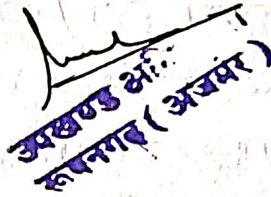 उपखण्ड अधि
रूपनगढ़ (अजमेर)